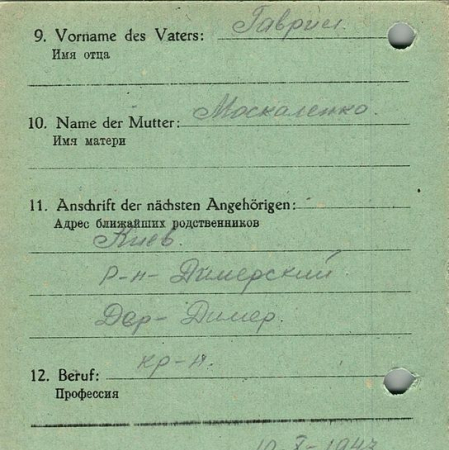 9. Vorname des Vaters: Гаврил
Имя отца
10. Name der Mutter: Москаленко
Имя матери
11. Anschrift der nächsten Angehörigen:
Адрес ближайших родственников
Киев.
р-н-Димерский
Дер- Димер.
12. Beruf: кр-н.
Профессия